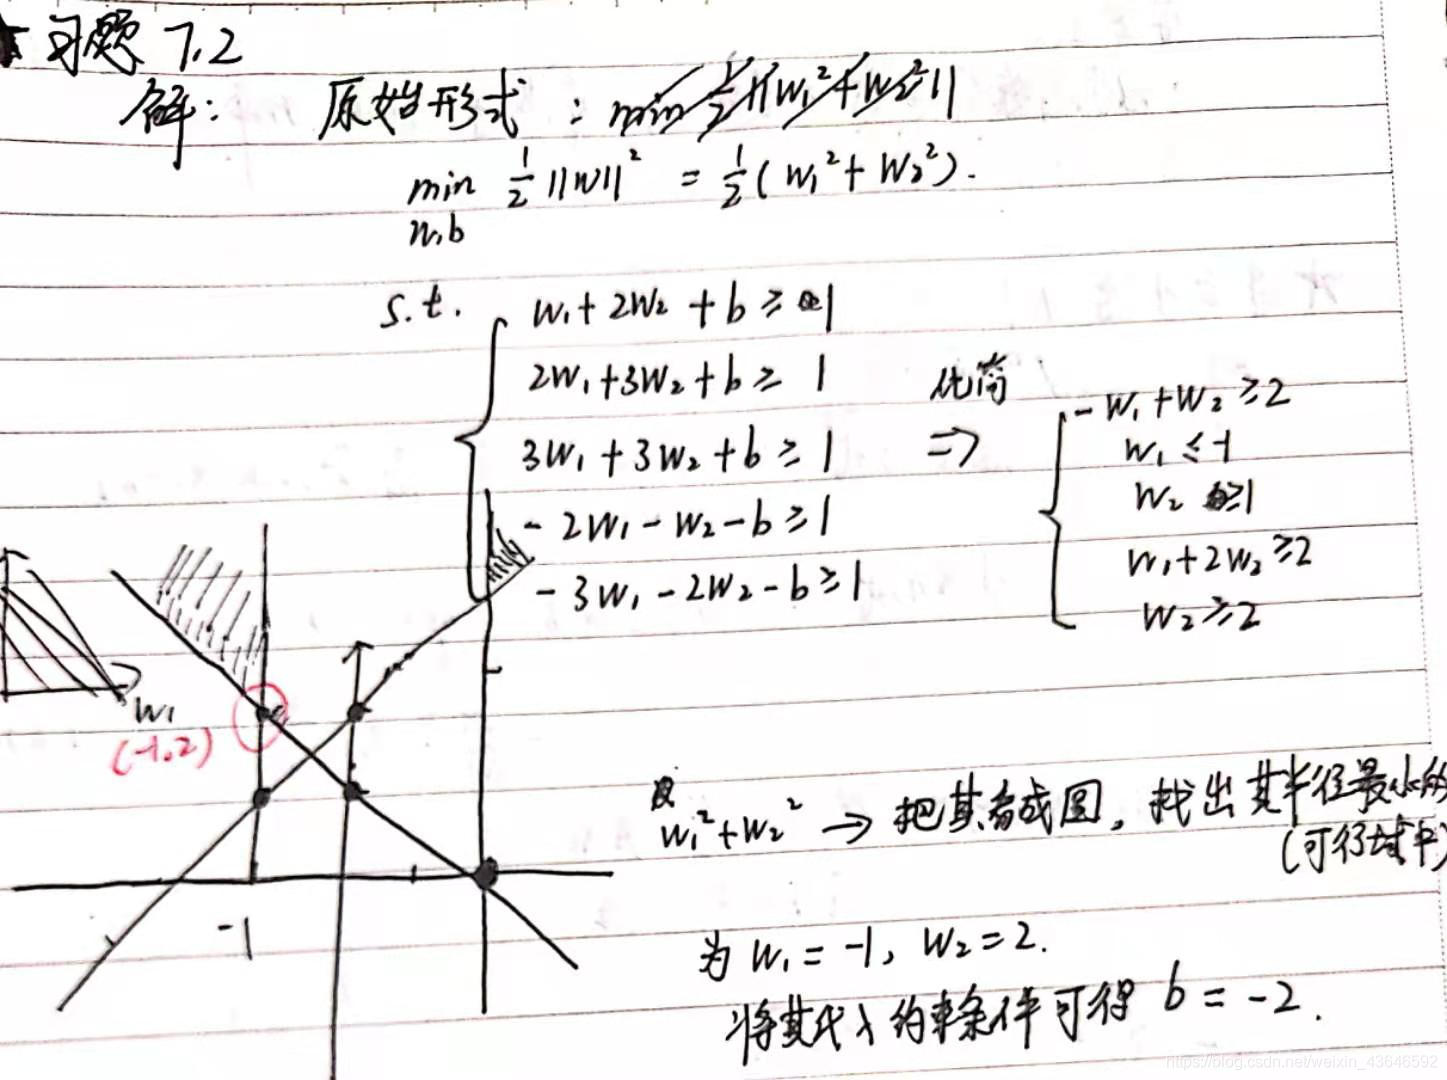 习题 7.2
解: 原始形式: min 1/2 ||w₁²+w₂²||
min 1/2 ||w||² = 1/2 (w₁²+w₂²).
w,b
s.t.
w₁+2w₂+b≥1
2w₁+3w₂+b≥1
3w₁+3w₂+b≥1
-2w₁-w₂-b≥1
-3w₁-2w₂-b≥1
化简
⇒
-w₁+w₂≥2
w₁≤-1
w₂≥1
w₁+2w₂≥2
w₂≥2
w₁
(-1,2)
-1
w₁²+w₂² → 把其看成圆,找出其半径最小的
(可行域中)
为 w₁=-1, w₂=2.
将其代入约束条件可得 b=-2.
https://blog.csdn.net/weixin_43646592